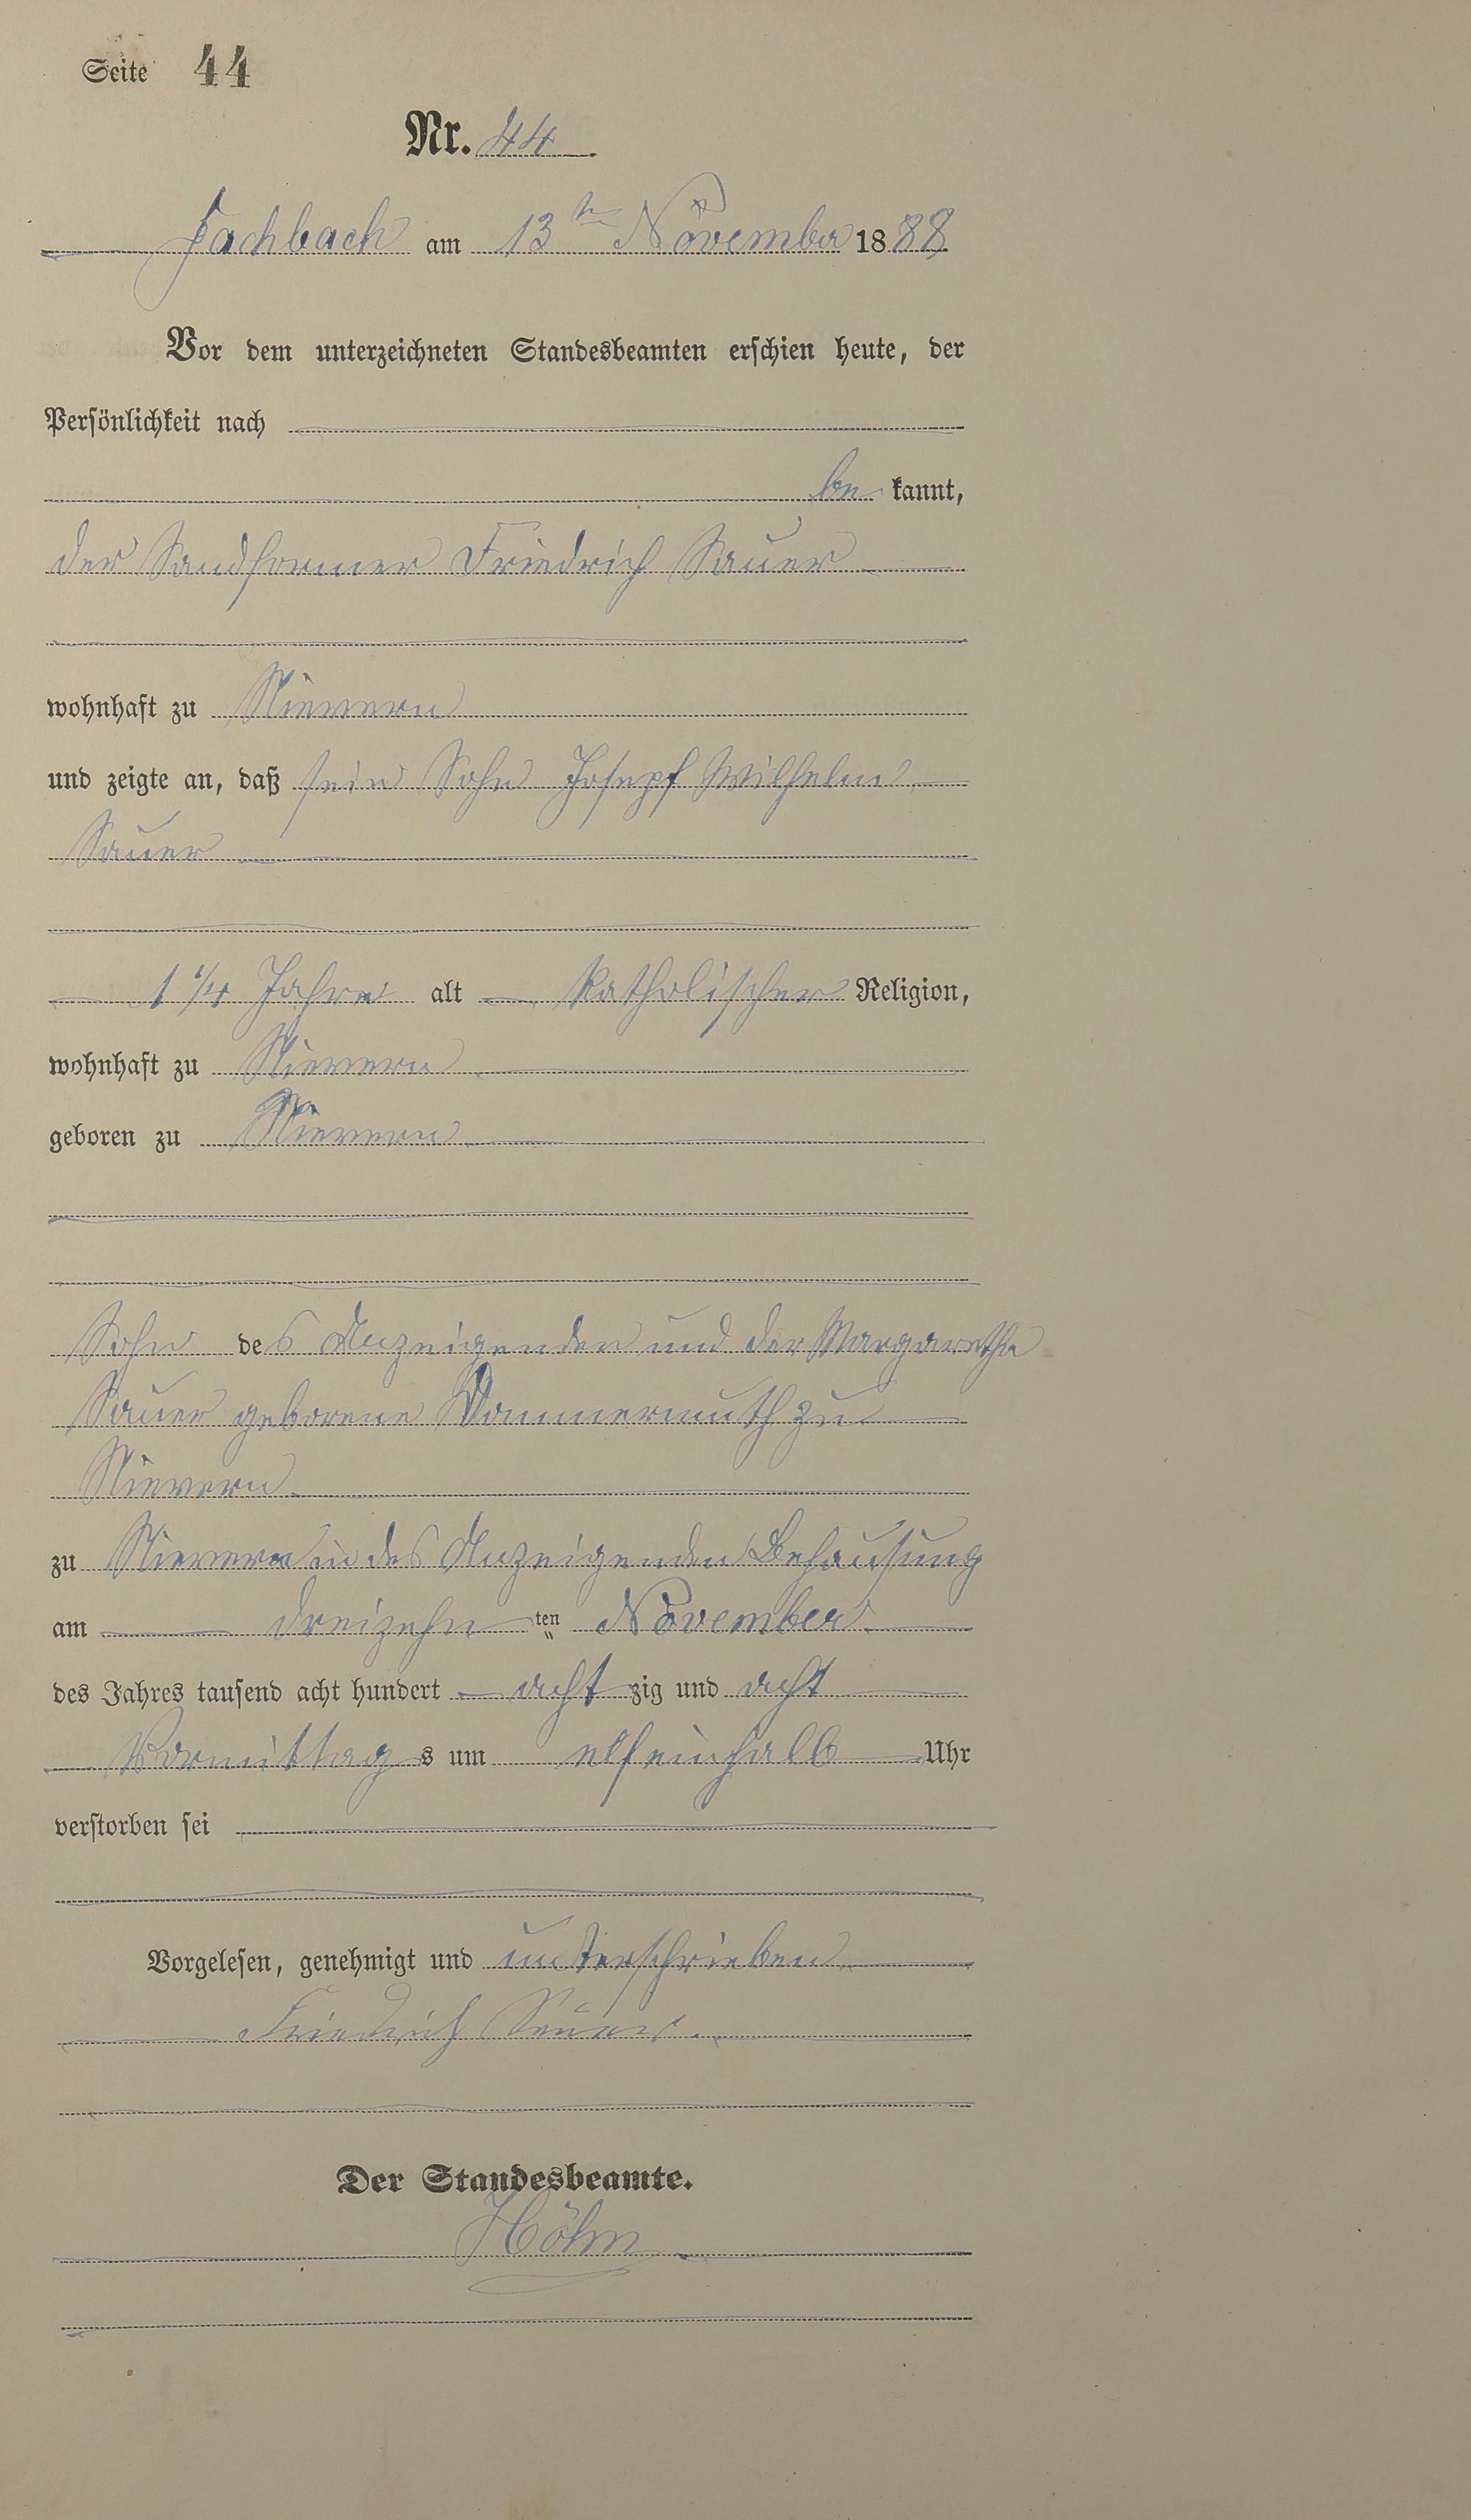 Seite 44
Nr. 44
Fachbach am 13ten November 1888
Vor dem unterzeichneten Standesbeamten erschien heute, der
Persönlichkeit nach
be kannt,
der Sandformer Friedrich Sauer
wohnhaft zu Nievern
und zeigte an, daß sein Sohn Josepf Wilhelm
Sauer
1 1/4 Jahre alt katholischer Religion,
wohnhaft zu Nievern
geboren zu Nievern
Sohn des Anzeigenden und der Margaretha
Sauer geborene Dommermuth zu
Nievern
zu Nievern in des Anzeigenden Behausung
am dreizehn ten November
des Jahres tausend acht hundert acht zig und acht
Vormittag s um elf einhalb Uhr
verstorben sei
Vorgelesen, genehmigt und unterschrieben
Friedrich Sauer.
Der Standesbeamte.
Höhn